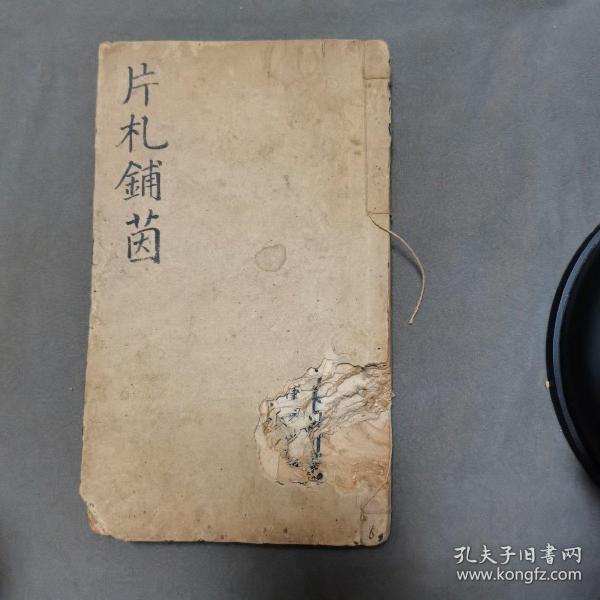 片札鋪茵
孔夫子旧書网
www.kongfz.com